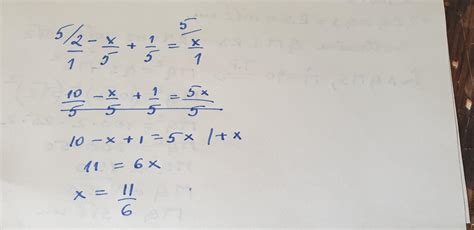 5/ 2/1 - x/5 + 1/5 = 5/ x/1
10/5 - x/5 + 1/5 = 5x/5
10 - x + 1 = 5x /+x
11 = 6x
x = 11/6